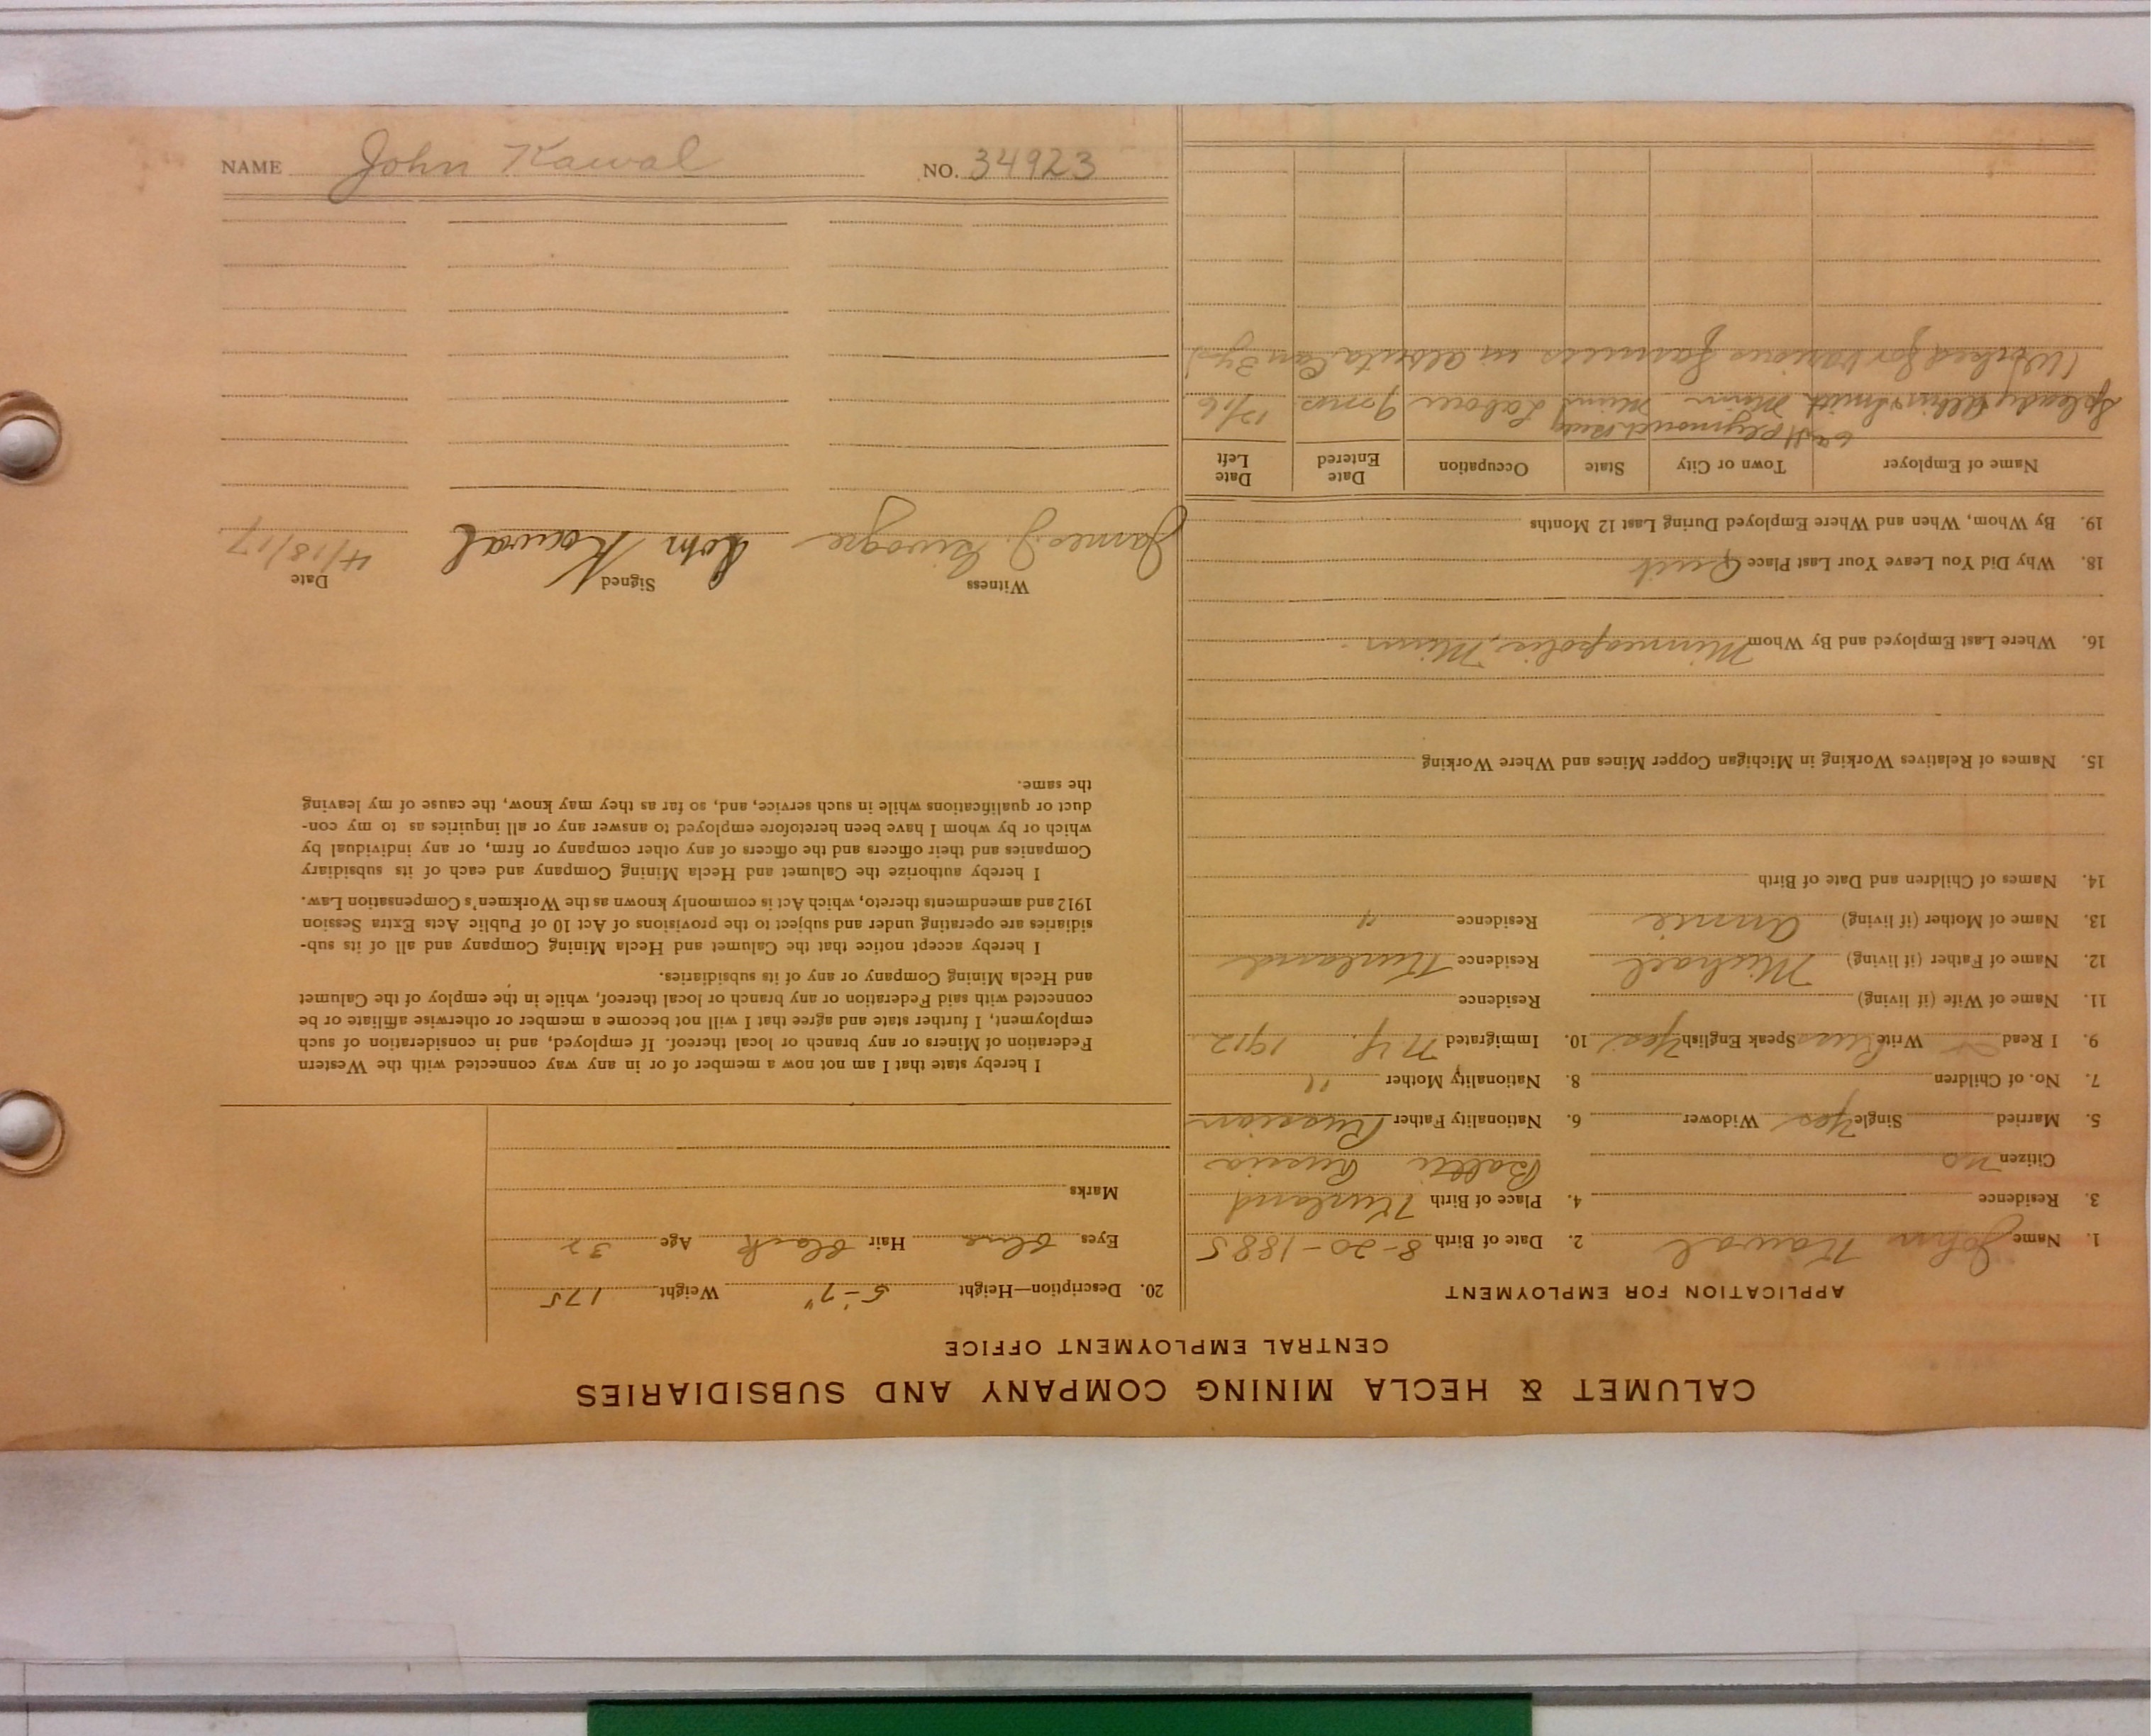 CALUMET & HECLA MINING COMPANY AND SUBSIDIARIES
CENTRAL EMPLOYMENT OFFICE
APPLICATION FOR EMPLOYMENT
1. Name John Kawal 2. Date of Birth 8-20-1885
3. Residence 4. Place of Birth Kurland
Citizen no Baltic Russia
5. Married Single Yes Widower 6. Nationality Father Russian
7. No. of Children 8. Nationality Mother "
9. I Read Write Russ Speak English Yes 10. Immigrated N.Y. 1912
11. Name of Wife (if living) Residence
12. Name of Father (if living) Michael Residence Kurland
13. Name of Mother (if living) Annie Residence "
14. Names of Children and Date of Birth
15. Names of Relatives Working in Michigan Copper Mines and Where Working
16. Where Last Employed and By Whom Minneapolis, Minn.
18. Why Did You Leave Your Last Place Quit
19. By Whom, When and Where Employed During Last 12 Months
Name of Employer Town or City State Occupation Date Entered Date Left
Smith Minn Labour 9 mos 12/16
(Worked for various farmers in Alberta Can 3 yrs)
20. Description—Height 5'-7" Weight 175
Eyes blue Hair black Age 32
Marks
I hereby state that I am not now a member of or in any way connected with the Western
Federation of Miners or any branch or local thereof. If employed, and in consideration of such
employment, I further state and agree that I will not become a member or otherwise affiliate or be
connected with said Federation or any branch or local thereof, while in the employ of the Calumet
and Hecla Mining Company or any of its subsidiaries.
I hereby accept notice that the Calumet and Hecla Mining Company and all of its sub-
sidiaries are operating under and subject to the provisions of Act 10 of Public Acts Extra Session
1912 and amendments thereto, which Act is commonly known as the Workmen's Compensation Law.
I hereby authorize the Calumet and Hecla Mining Company and each of its subsidiary
Companies and their officers and the officers of any other company or firm, or any individual by
which or by whom I have been heretofore employed to answer any or all inquiries as to my con-
duct or qualifications while in such service, and, so far as they may know, the cause of my leaving
the same.
Witness Signed Date
James J. John Kowal 4/18/17
NAME John Kawal NO. 34923